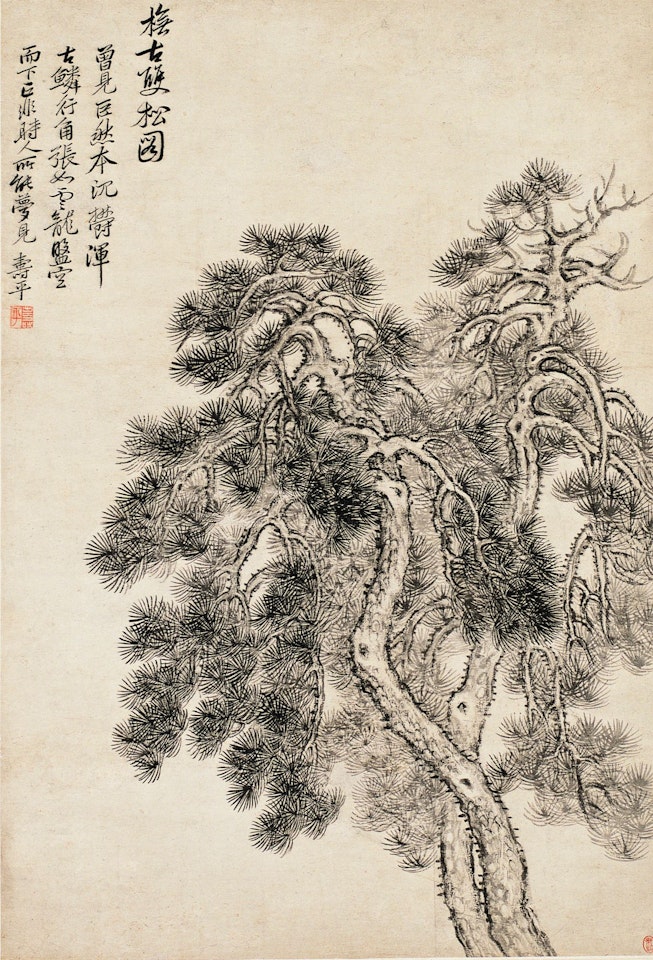 橅古雙松圖
曾見巨然本沉鬱渾
古鱗行角張如雲龍盤空
而下已非時人所能夢見 壽平